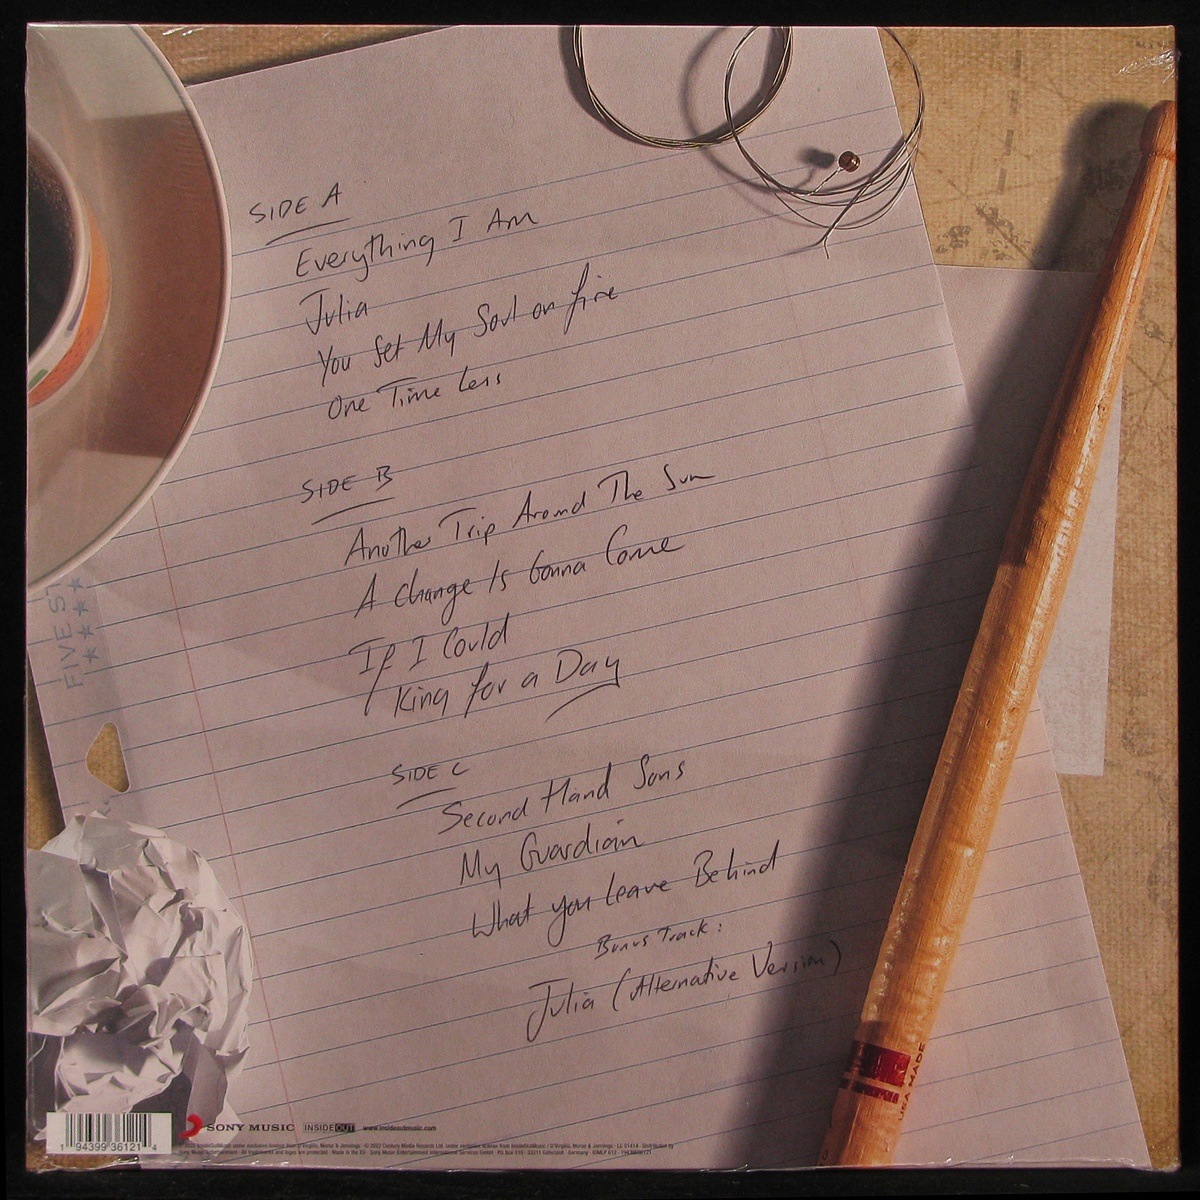 SIDE A
Everything I Am
Julia
You Set My Soul on fire
One Time Less
SIDE B
Another Trip Around The Sun
A Change Is Gonna Come
If I Could
King for a Day
SIDE C
Second Hand Sons
My Guardian
What you leave Behind
Bonus Track:
Julia (Alternative Version)
FIVE ST
USA MADE
1 94399 36121 4
SONY MUSIC INSIDEOUT www.insideoutmusic.com